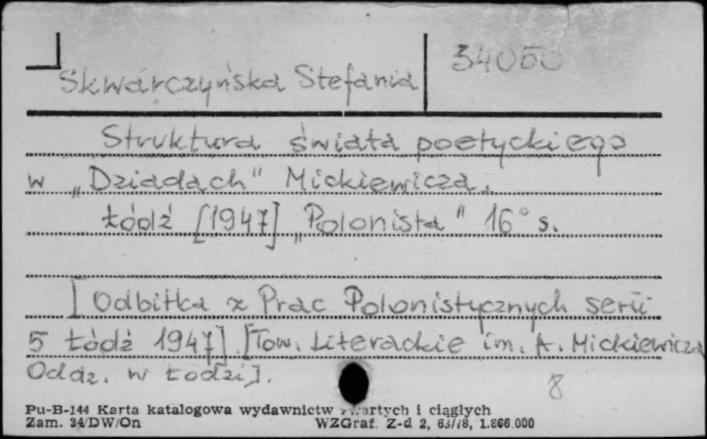 Skwarczyńska Stefania 34050
Struktura świata poetyckiego
w „Dziadach" Mickiewicza.
Łódź [1947] „Polonista" 16° s.
[Odbitka z Prac Polonistycznych serii
5 Łódź 1947]. [Tow. Literackie im. A. Mickiewicza
Oddz. w Łodzi].
8
Pu-B-144 Karta katalogowa wydawnictw zwartych i ciągłych
Zam. 34/DW/On WZGraf. Z-d 2, 63/78, 1.866.000